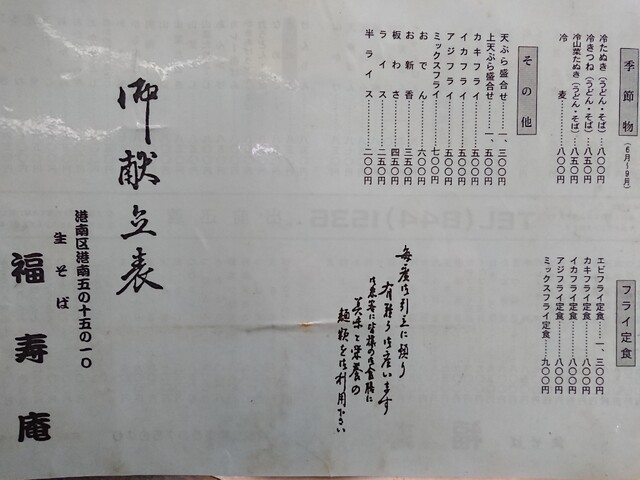 季節物
(6月〜9月)
冷たぬき(うどん・そば)…八〇〇円
冷きつね(うどん・そば)…八五〇円
冷山菜たぬき(うどん・そば)…八五〇円
冷麦…………八〇〇円
その他
天ぷら盛合せ……一、三〇〇円
上天ぷら盛合せ…一、五〇〇円
カキフライ…………五〇〇円
イカフライ…………五〇〇円
アジフライ…………五〇〇円
ミックスフライ……七〇〇円
おでん…………六〇〇円
お新香…………三五〇円
板わさ…………四五〇円
ライス…………二五〇円
半ライス…………二〇〇円
フライ定食
エビフライ定食……一、三〇〇円
カキフライ定食………八〇〇円
イカフライ定食………八〇〇円
アジフライ定食………八〇〇円
ミックスフライ定食……九〇〇円
毎度御引立に預り
有難う御座います
御来客に皆様の御食膳に
美味と栄養の
麺類を御利用下さい
御献立表
港南区港南五の十五の一〇
生そば
福寿庵
TEL(844)1536